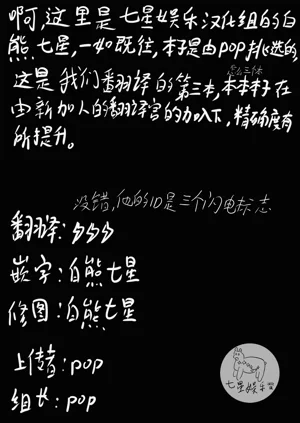 啊,这里是七星娱乐汉化组的白
熊七星,一如既往,本子是由pop挑选的,
这是我们翻译的第三本,本本子在
由新加入的翻译官的加入下,精确度有
所提升。
没错,他的ID是三个闪电标志
翻译:⚡⚡⚡
嵌字:白熊七星
修图:白熊七星
上传者:pop
组长:pop
七星娱乐